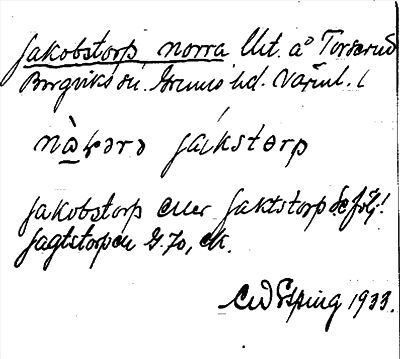 Jakobstorp norra Utt. å Torserud
Borgviks sn. Grums hd. Värml. l
nàꝛərə jáikstɵrp
Jakobstorp eller Jaktstorp
Jagtstorpen G. Jo, ek.
CW Esping 1933.